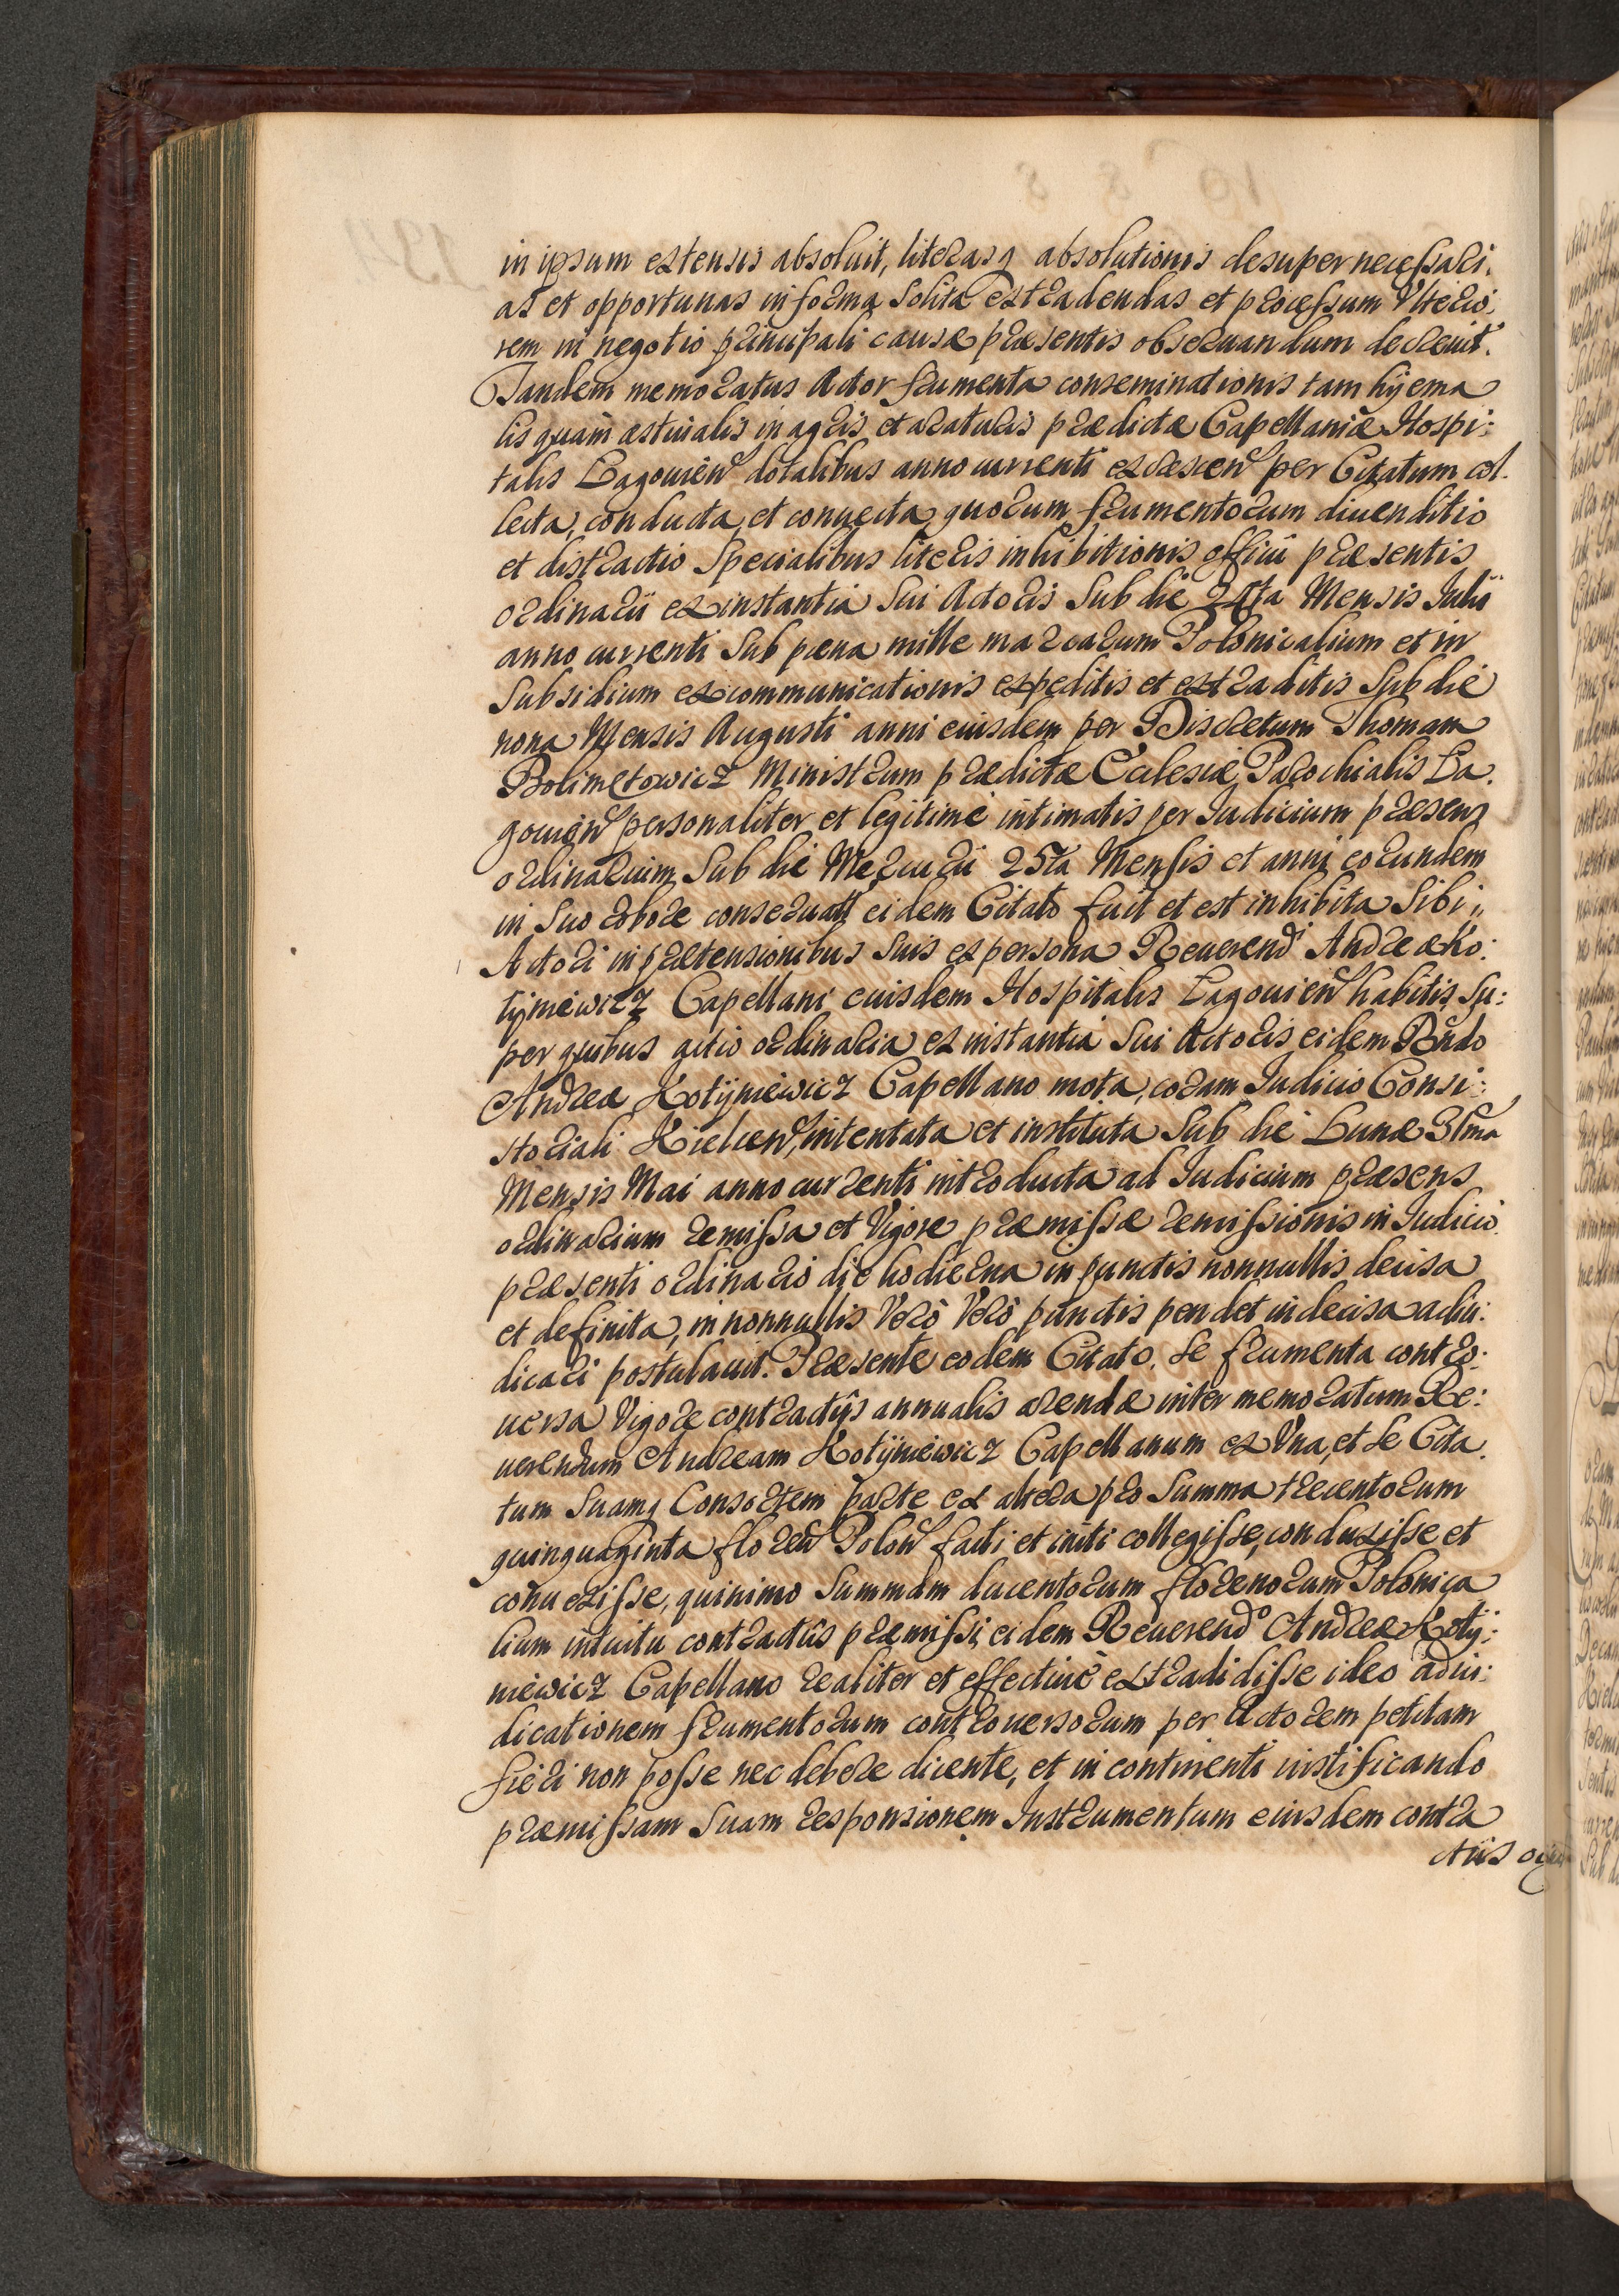 in ipsum extensis absoluit, literasq absolutionis desuper necessari:
as et opportunas in forma solita extradendas et processum Vlterio:
rem in negotio principali causæ præsentis obseruandum decreuit.
Tandem memoratus Actor frumenta conseminationis tam hyema
lis quam æstiualis in agris et araturis prædictæ Capellaniæ Hospi:
talis Lagouien dotalibus anno currenti excrescen per Citatum col.
lecta, conducta, et conuecta, quorum frumentorum diuenditio
et distractio specialibus literis inhibitionis officii præsentis
ordinarii ex instantia sui Actoris sub die 24ta Mensis Julii
anno currenti sub pœna mille marcarum Polonicalium et in
subsidium excommunicationis expeditis et extraditis sub die
nona Mensis Augusti anni eiusdem per Discretum Thomam
Bolimetowicz Ministrum prædictæ Ecclesiæ Parochialis La:
gouien personaliter et legitime intimatis per Judicium præsens
ordinarium sub die Mercurii 25ta Mensis et anni eorundem
in suo robore conseruatt eidem Citato fuit et est inhibita sibi
Actori in prætensionibus suis ex persona Reuerend Andreæ Ko:
tyniewicz Capellani eiusdem Hospitalis Lagouien habitis, su:
per quibus actio ordinaria ex instantia sui Actoris eidem Rndo
Andreæ Kotyniewicz Capellano mota, coram Judicio Consi:
storiali Kielcen, intentata et instituta sub die Lunæ 31ma
Mensis Mai anno currenti introducta ad Judicium præsens
ordinarium remissa et Vigore præmissæ remissionis in Judicio
præsenti ordinario die hodierna in punctis nonnullis decisa
et definita, in nonnullis Vero Vero punctis pendet indecisa adiu:
dicari postulauit. Præsente eodem Citato. se frumenta contro:
uersa Vigore contractus annualis arendæ inter memoratum Re:
uerendum Andream Kotyniewicz Capellanum ex Vna, et se Cita
tum suamq Consortem parte ex altera pro summa trecentorum
quinquaginta floren Polon facti et initi collegisse, conduxisse et
conuexisse, quinimo summam ducentorum florenorum Polonica
lium intuitu contractus præmissi, eidem Reuerendo Andreæ Koty:
niewicz Capellano realiter et effectiue extradidisse ideo adiu:
dicationem frumentorum controuersorum per Actorem petitam
fieri non posse nec debere dicente, et in continenti iustificando
præmissam suam responsionem Instrumentum eiusdem contra
ctus